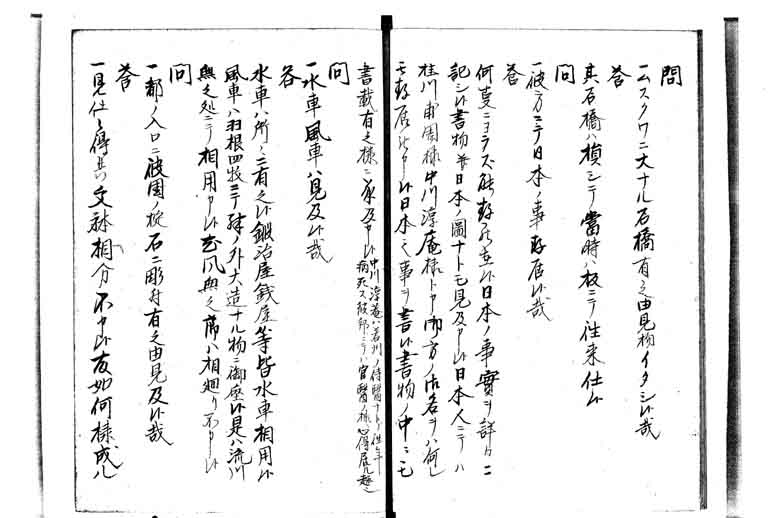 問
一ムスクワニ大ナル石橋有之由見物イタシ候哉
答
其石橋ハ損シテ當時ハ板ニテ往来仕候
問
一彼方ニテ日本ノ事存居候哉
答
何事ニヨラズ能存居候日本ノ事實ヲ詳カニ
記シ候書物並日本ノ圖ナトモ見及申候日本人ニテハ
桂川甫周様中川淳庵様ト申御方ノ御名ヲハ何レ
モ存居申候日本之事ヲ書候書物ノ中ニモ
書載有之様ニ承及申候
問
一水車風車ハ見及候哉
答
水車ハ所々ニ有之候鍛冶屋銭屋等皆水車相用候
風車ハ羽根四枚ニテ殊ノ外大造ナル物ニ御座候是ハ流川
無之処ニテ相用申候尤风無之節ハ相廻リ不申候
問
一都ノ入口ニ彼国ノ掟石ニ彫付有之由見及候哉
答
一見仕候得共文躰相分不申候故如何様成ル